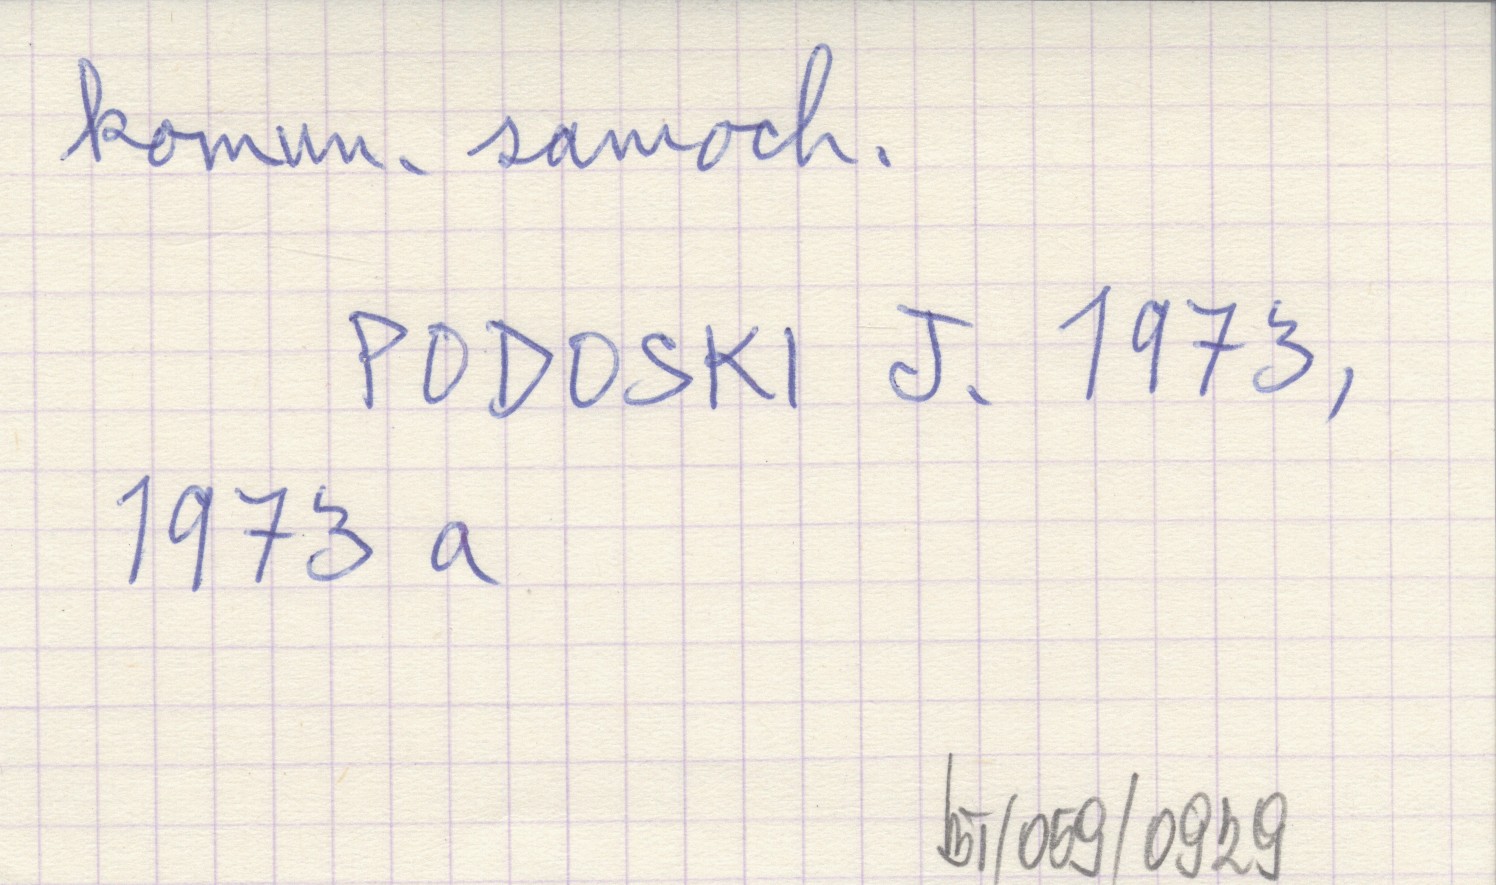 komun. samoch.
PODOSKI J. 1973,
1973 a
/059/0929